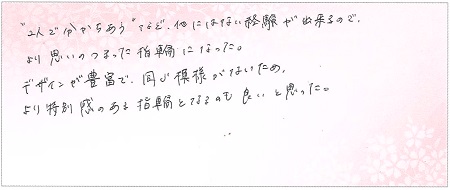 "2人で分かちあう"など、他にはない経験が出来るので、
より思いのつまった指輪になった。
デザインが豊富で、同じ模様がないため、
より特別感のある指輪となるのも良いと思った。